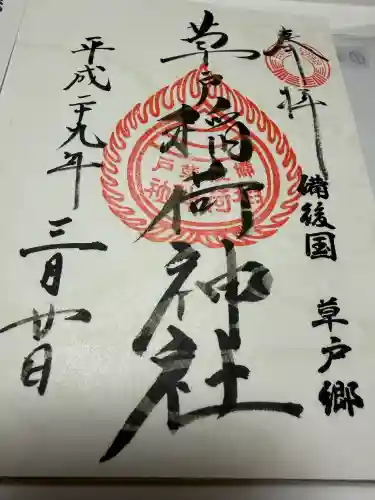 奉拝
備後国 草戸郷
草戸稲荷神社
平成二十九年
三月廿日